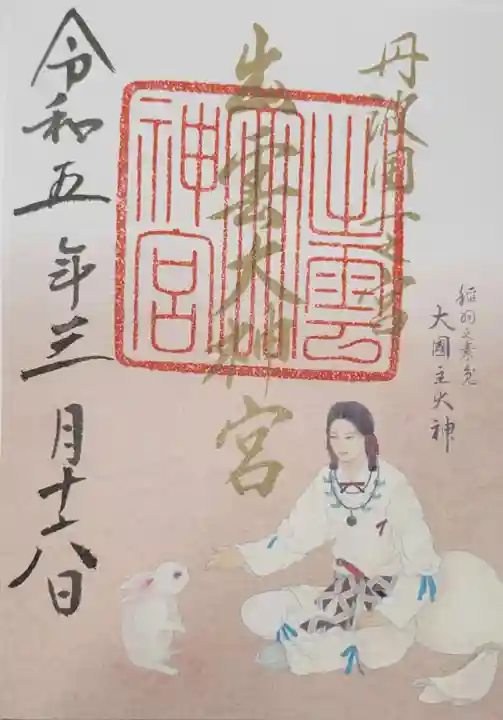 丹波國一之宮
出雲大神宮
出雲
神宮
稲羽之素兎
大國主大神
令和五年三月十八日